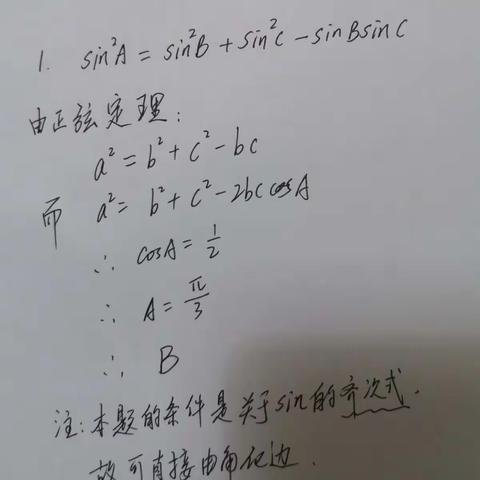 1. sin²A = sin²B + sin²C - sinBsinC
由正弦定理:
a² = b² + c² - bc
而 a² = b² + c² - 2bc cosA
∴ cosA = 1/2
∴ A = π/3
∴ B
注:本题的条件是关于sin的齐次式.
故可直接由角化边.